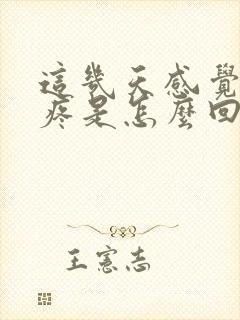 這幾天感覺
疼是怎麼回
王憲志